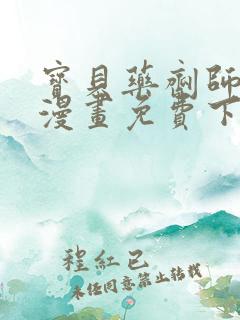 寶貝藥劑師
漫畫免費下
程紅已
未經同意禁止轉載